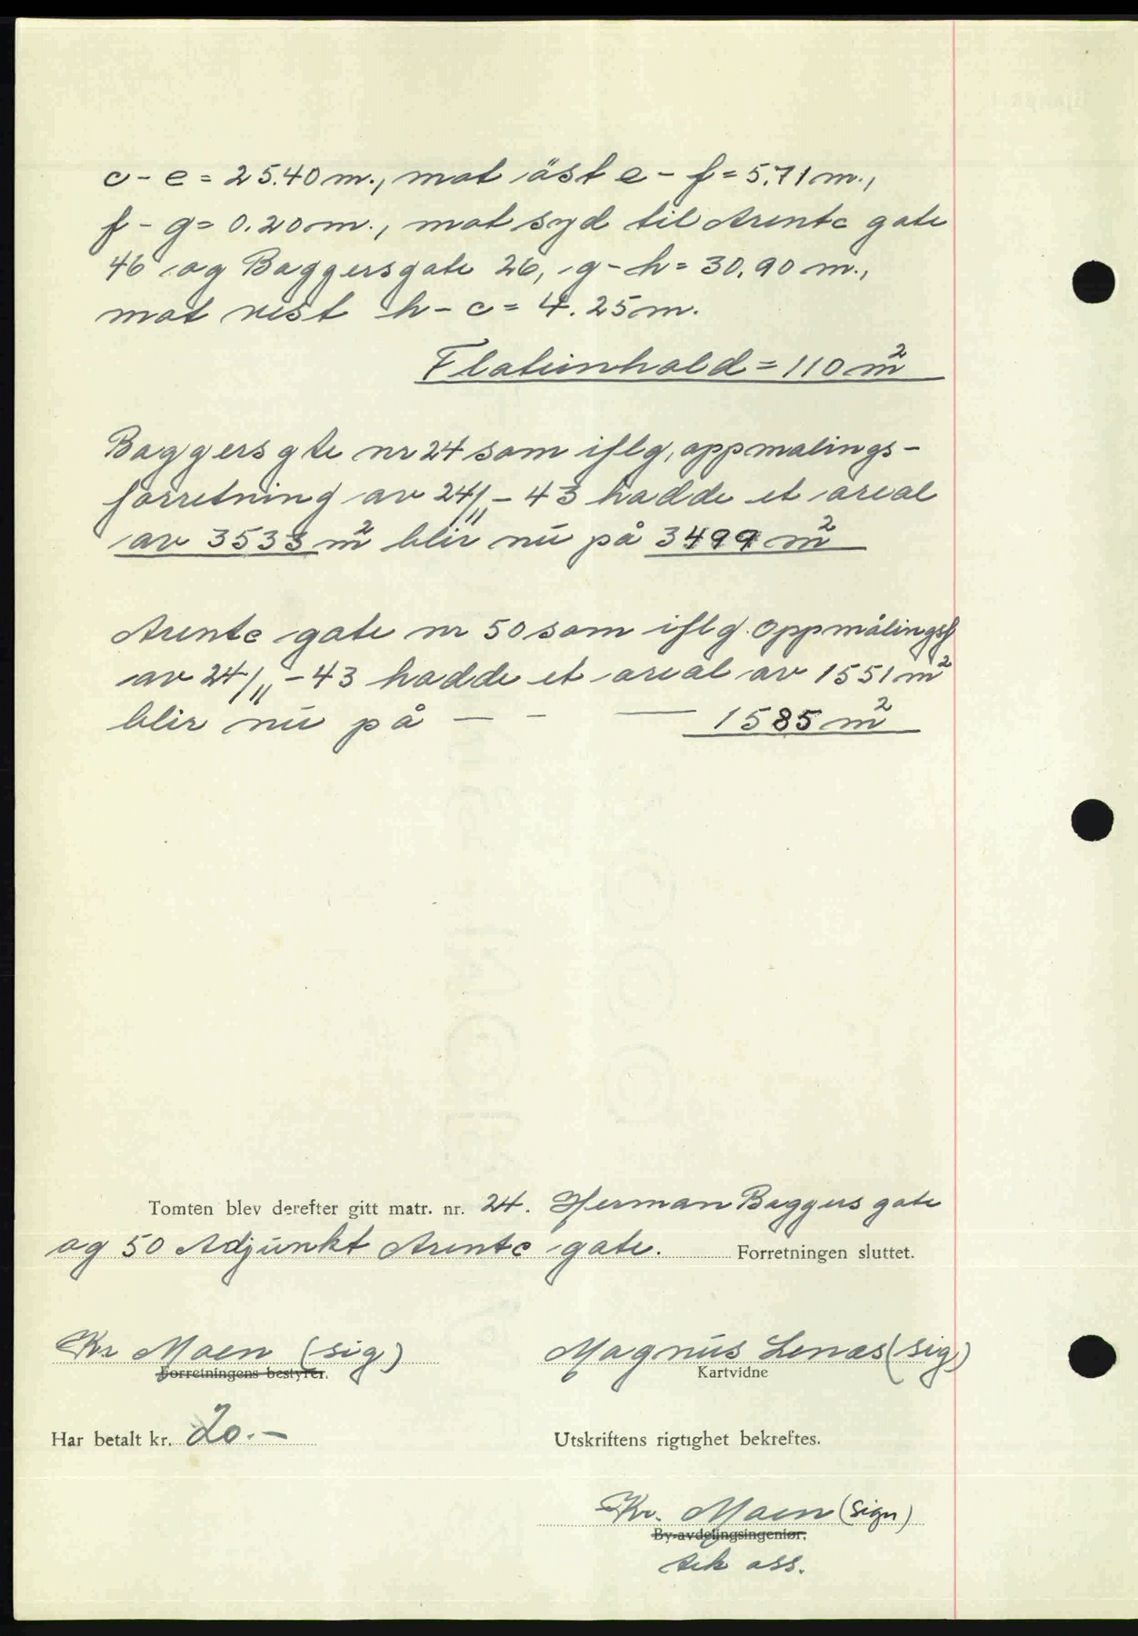 c - e = 25.40 m., mot öst e - f = 5.71 m.,
f - g = 0.20 m., mot syd til Arentz gate
46 og Baggersgate 26, g - h = 30.90 m.,
mot vest h - c = 4.25 m.
Flateinhold = 110 m²
Baggers gte nr 24 som iflg. oppmalings-
forretning av 24/11 - 43 hadde et areal
av 3533 m² blir nu på 3499 m²
Arentz gate nr 50 som iflg. Oppmålingsf
av 24/11 - 43 hadde et areal av 1551 m²
blir nu på — - — 1585 m²
Tomten blev derefter gitt matr. nr. 24. Herman Baggers gate
og 50 Adjunkt Arentz gate. Forretningen sluttet.
Kr Moen (sig) Magnus Lenæs (sig)
Forretningens bestyrer. Kartvidne
Har betalt kr. 20.- Utskriftens rigtighet bekreftes.
Kr. Moen (sign)
By-avdelingsingeniør.
tek ass.